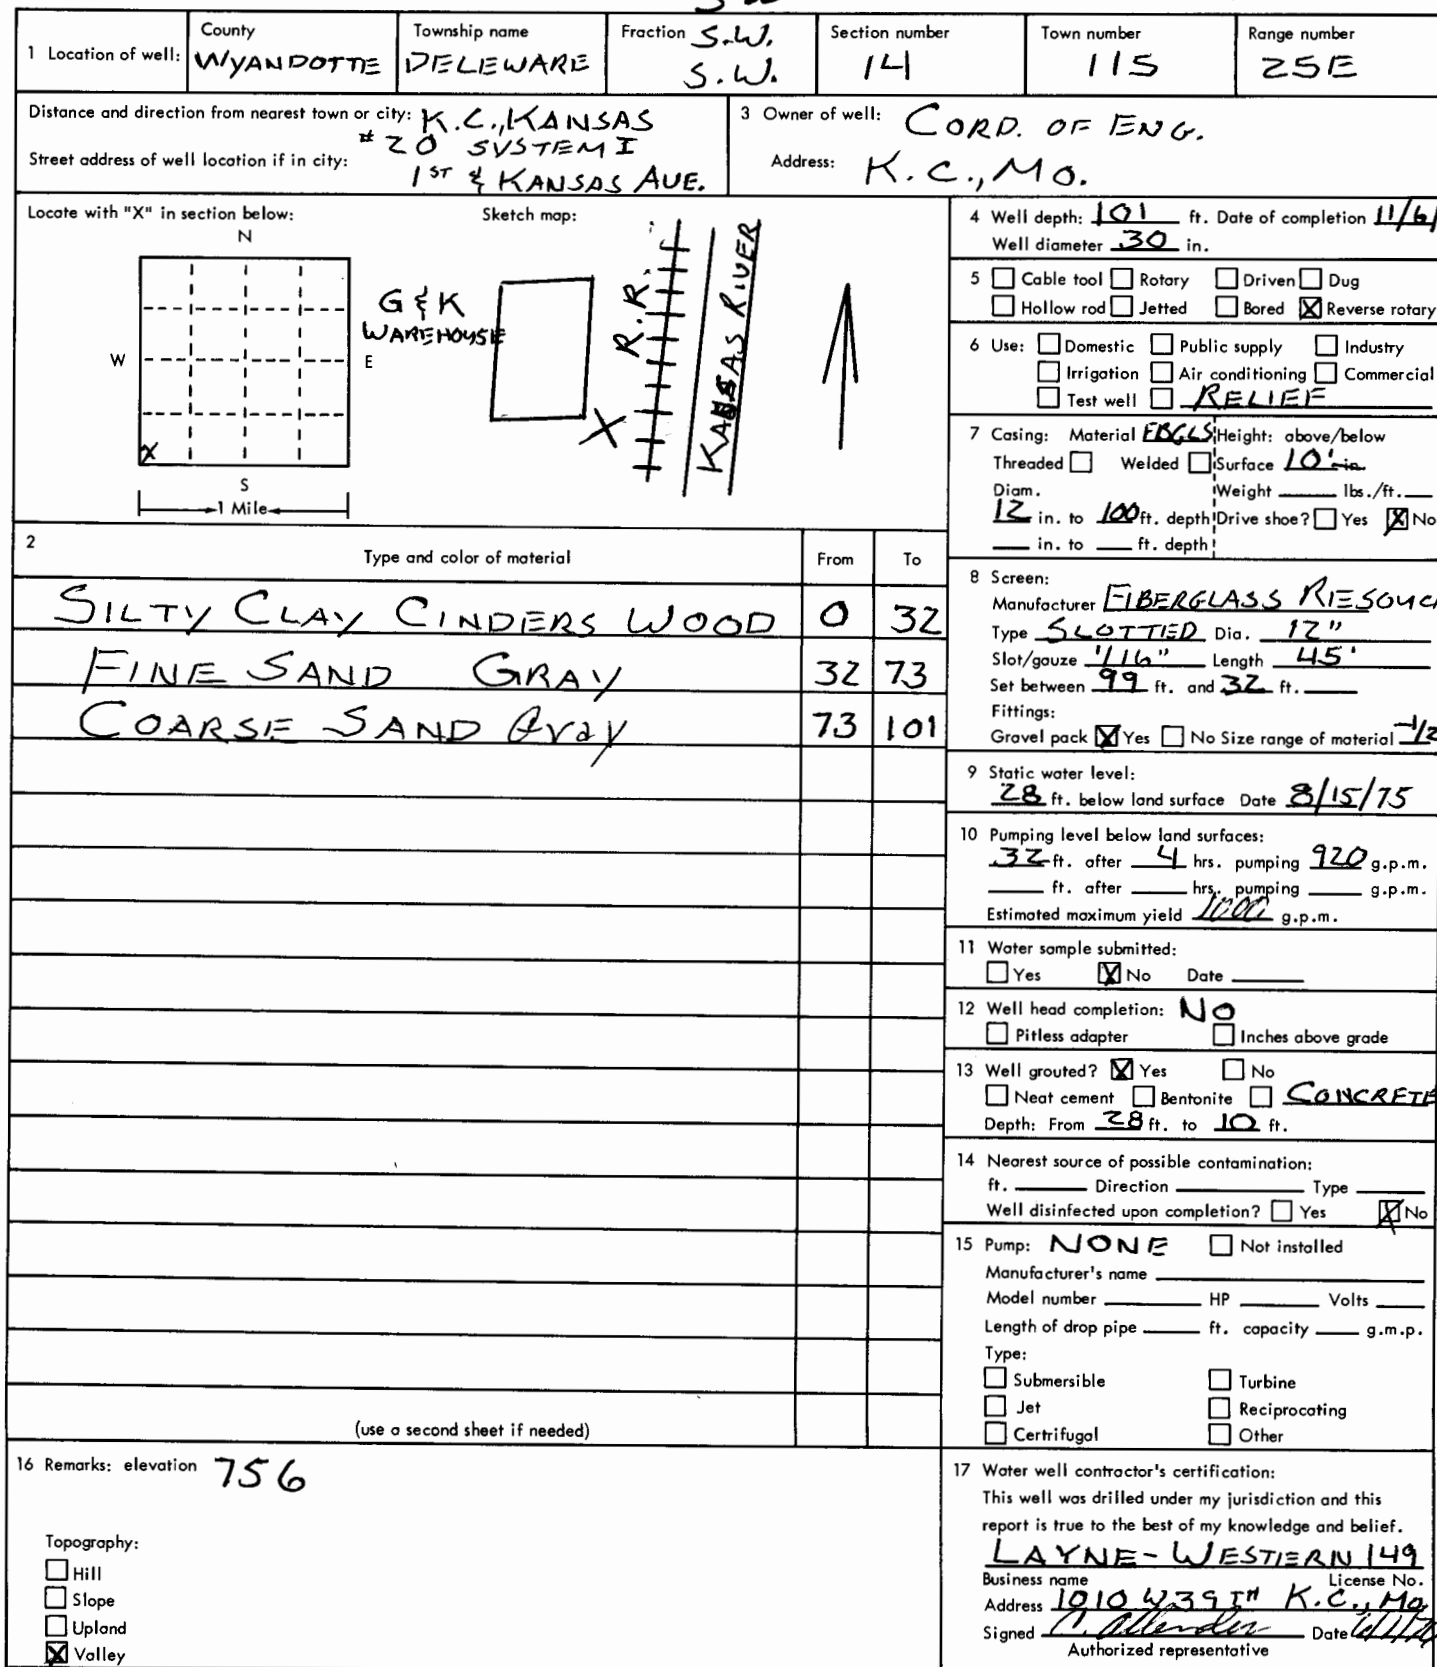 1 Location of well:
County
WYANDOTTE
Township name
DELEWARE
Fraction S.W.
S.W.
Section number
14
Town number
11S
Range number
25E
Distance and direction from nearest town or city: K.C., KANSAS
# 20 SYSTEM I
Street address of well location if in city:
1ST & KANSAS AVE.
3 Owner of well: CORD. OF ENG.
Address: K.C., MO.
Locate with "X" in section below:
N
W
E
X
S
1 Mile
Sketch map:
G & K
WAREHOUSE
X
R.R.
KANSAS RIVER
2
Type and color of material From To
SILTY CLAY CINDERS WOOD 0 32
FINE SAND GRAY 32 73
COARSE SAND Gray 73 101
(use a second sheet if needed)
4 Well depth: 101 ft. Date of completion 11/6/
Well diameter 30 in.
5 Cable tool Rotary Driven Dug
Hollow rod Jetted Bored X Reverse rotary
6 Use: Domestic Public supply Industry
Irrigation Air conditioning Commercial
Test well RELIEF
7 Casing: Material FBGLS Height: above/below
Threaded Welded Surface 10' in
Diam. Weight lbs./ft.
12 in. to 100 ft. depth Drive shoe? Yes X No
in. to ft. depth
8 Screen:
Manufacturer FIBERGLASS RESOUC
Type SLOTTED Dia. 12"
Slot/gauze 1/16" Length 45'
Set between 99 ft. and 32 ft.
Fittings:
Gravel pack X Yes No Size range of material -1/2
9 Static water level:
28 ft. below land surface Date 8/15/75
10 Pumping level below land surfaces:
32 ft. after 4 hrs. pumping 920 g.p.m.
ft. after hrs. pumping g.p.m.
Estimated maximum yield 1000 g.p.m.
11 Water sample submitted:
Yes X No Date
12 Well head completion: NO
Pitless adapter Inches above grade
13 Well grouted? X Yes No
Neat cement Bentonite CONCRETE
Depth: From 28 ft. to 10 ft.
14 Nearest source of possible contamination:
ft. Direction Type
Well disinfected upon completion? Yes X No
15 Pump: NONE Not installed
Manufacturer's name
Model number HP Volts
Length of drop pipe ft. capacity g.m.p.
Type:
Submersible Turbine
Jet Reciprocating
Certrifugal Other
16 Remarks: elevation 756
Topography:
Hill
Slope
Upland
X Valley
17 Water well contractor's certification:
This well was drilled under my jurisdiction and this
report is true to the best of my knowledge and belief.
LAYNE-WESTERN 149
Business name License No.
Address 1010 W 39TH K.C., Mo
Signed C. Allender Date
Authorized representative